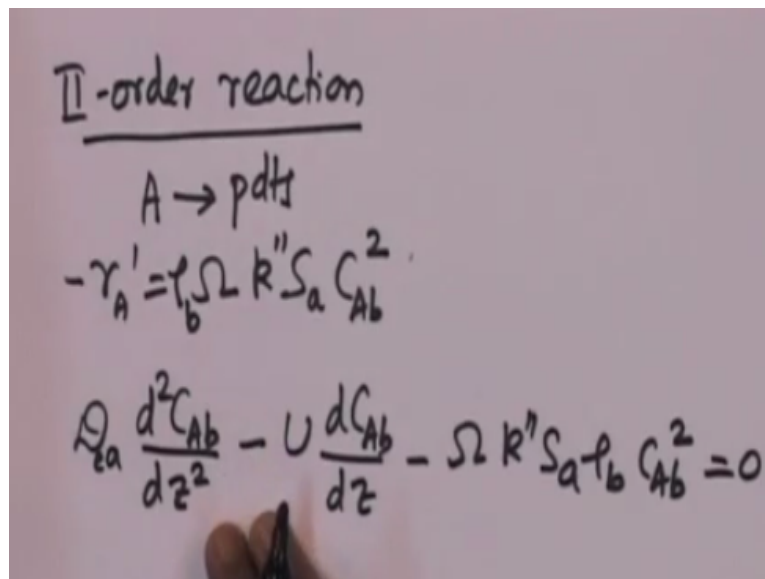 II-order reaction
A → pdts
-r_A' = ρ_b Ω k'' S_a C_Ab^2
D_za d^2C_Ab/dz^2 - U dC_Ab/dz - Ω k'' S_a ρ_b C_Ab^2 = 0